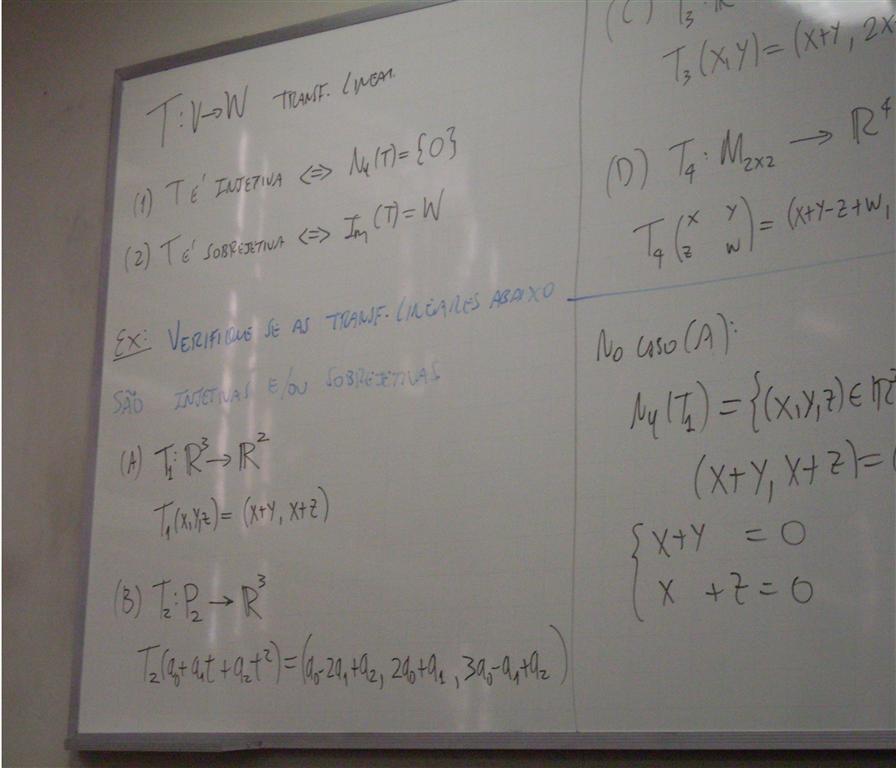 T: V→W TRANSF. LINEAR
(1) T É INJETIVA <=> Nu(T) = {0}
(2) T É SOBREJETIVA <=> Im(T) = W
Ex: VERIFIQUE SE AS TRANSF. LINEARES ABAIXO
SÃO INJETIVAS E/OU SOBREJETIVAS
(A) T₁: ℝ³ → ℝ²
T₁(x,y,z) = (x+y, x+z)
(B) T₂: P₂ → ℝ³
T₂(a₀+a₁t+a₂t²) = (a₀-2a₁+a₂, 2a₀+a₁, 3a₀-a₁+a₂)
(C) T₃: ℝ
T₃(x,y) = (x+y, 2x
(D) T₄: M₂ₓ₂ → ℝ⁴
T₄(x y
z w) = (x+y-z+w,
NO CASO (A):
Nu(T₁) = {(x,y,z) ∈ ℝ³
(x+y, x+z) = (
{x+y = 0
x +z = 0